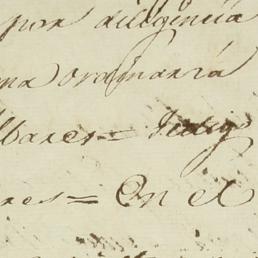 por diligencia
ma ordinaria
lbares =
res = En el